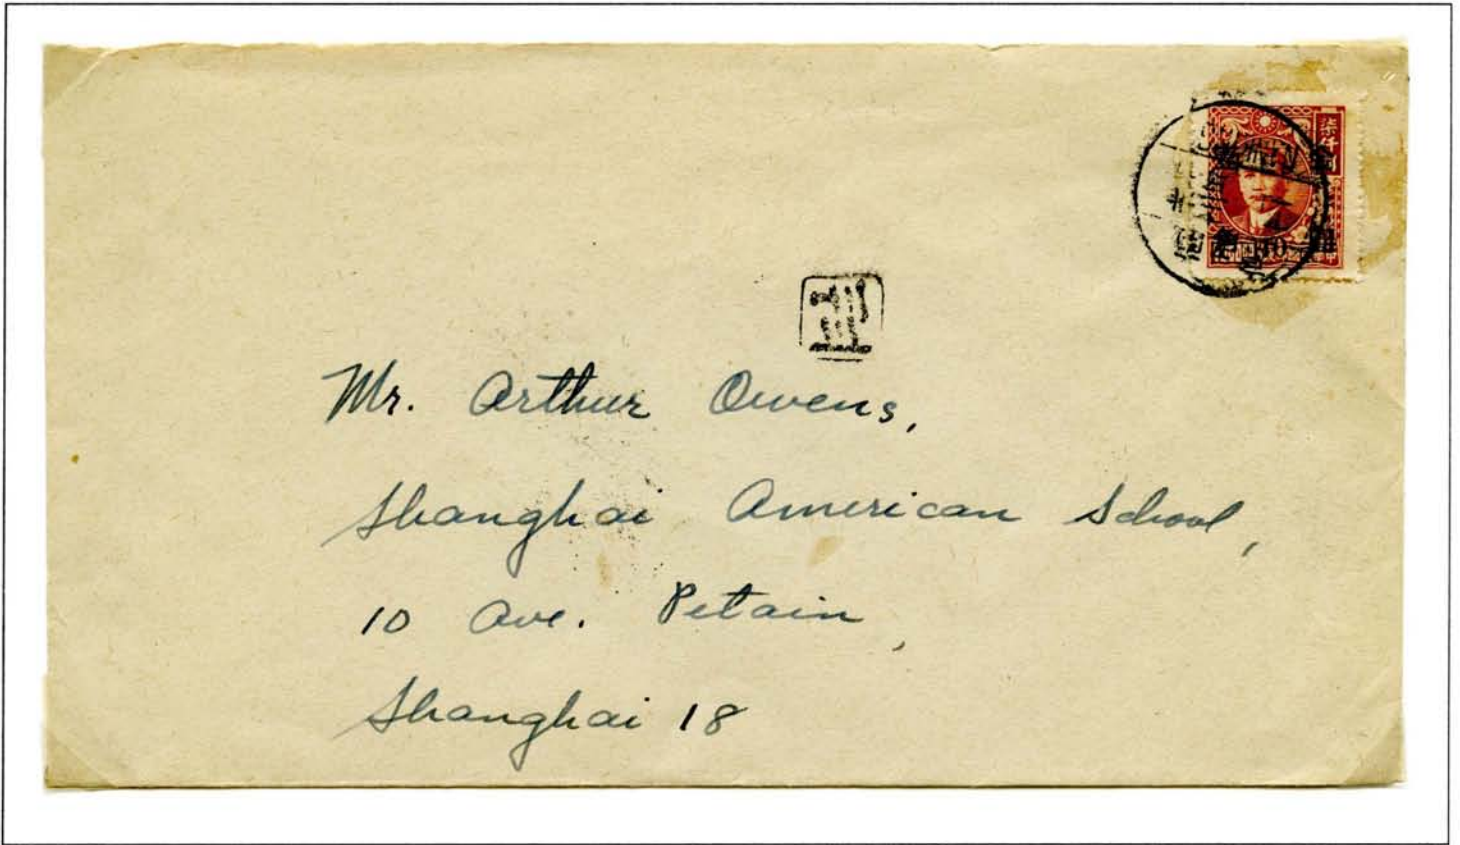 柒仟圓
10
Mr. Arthur Owens,
Shanghai American School,
10 Ave. Petain,
Shanghai 18